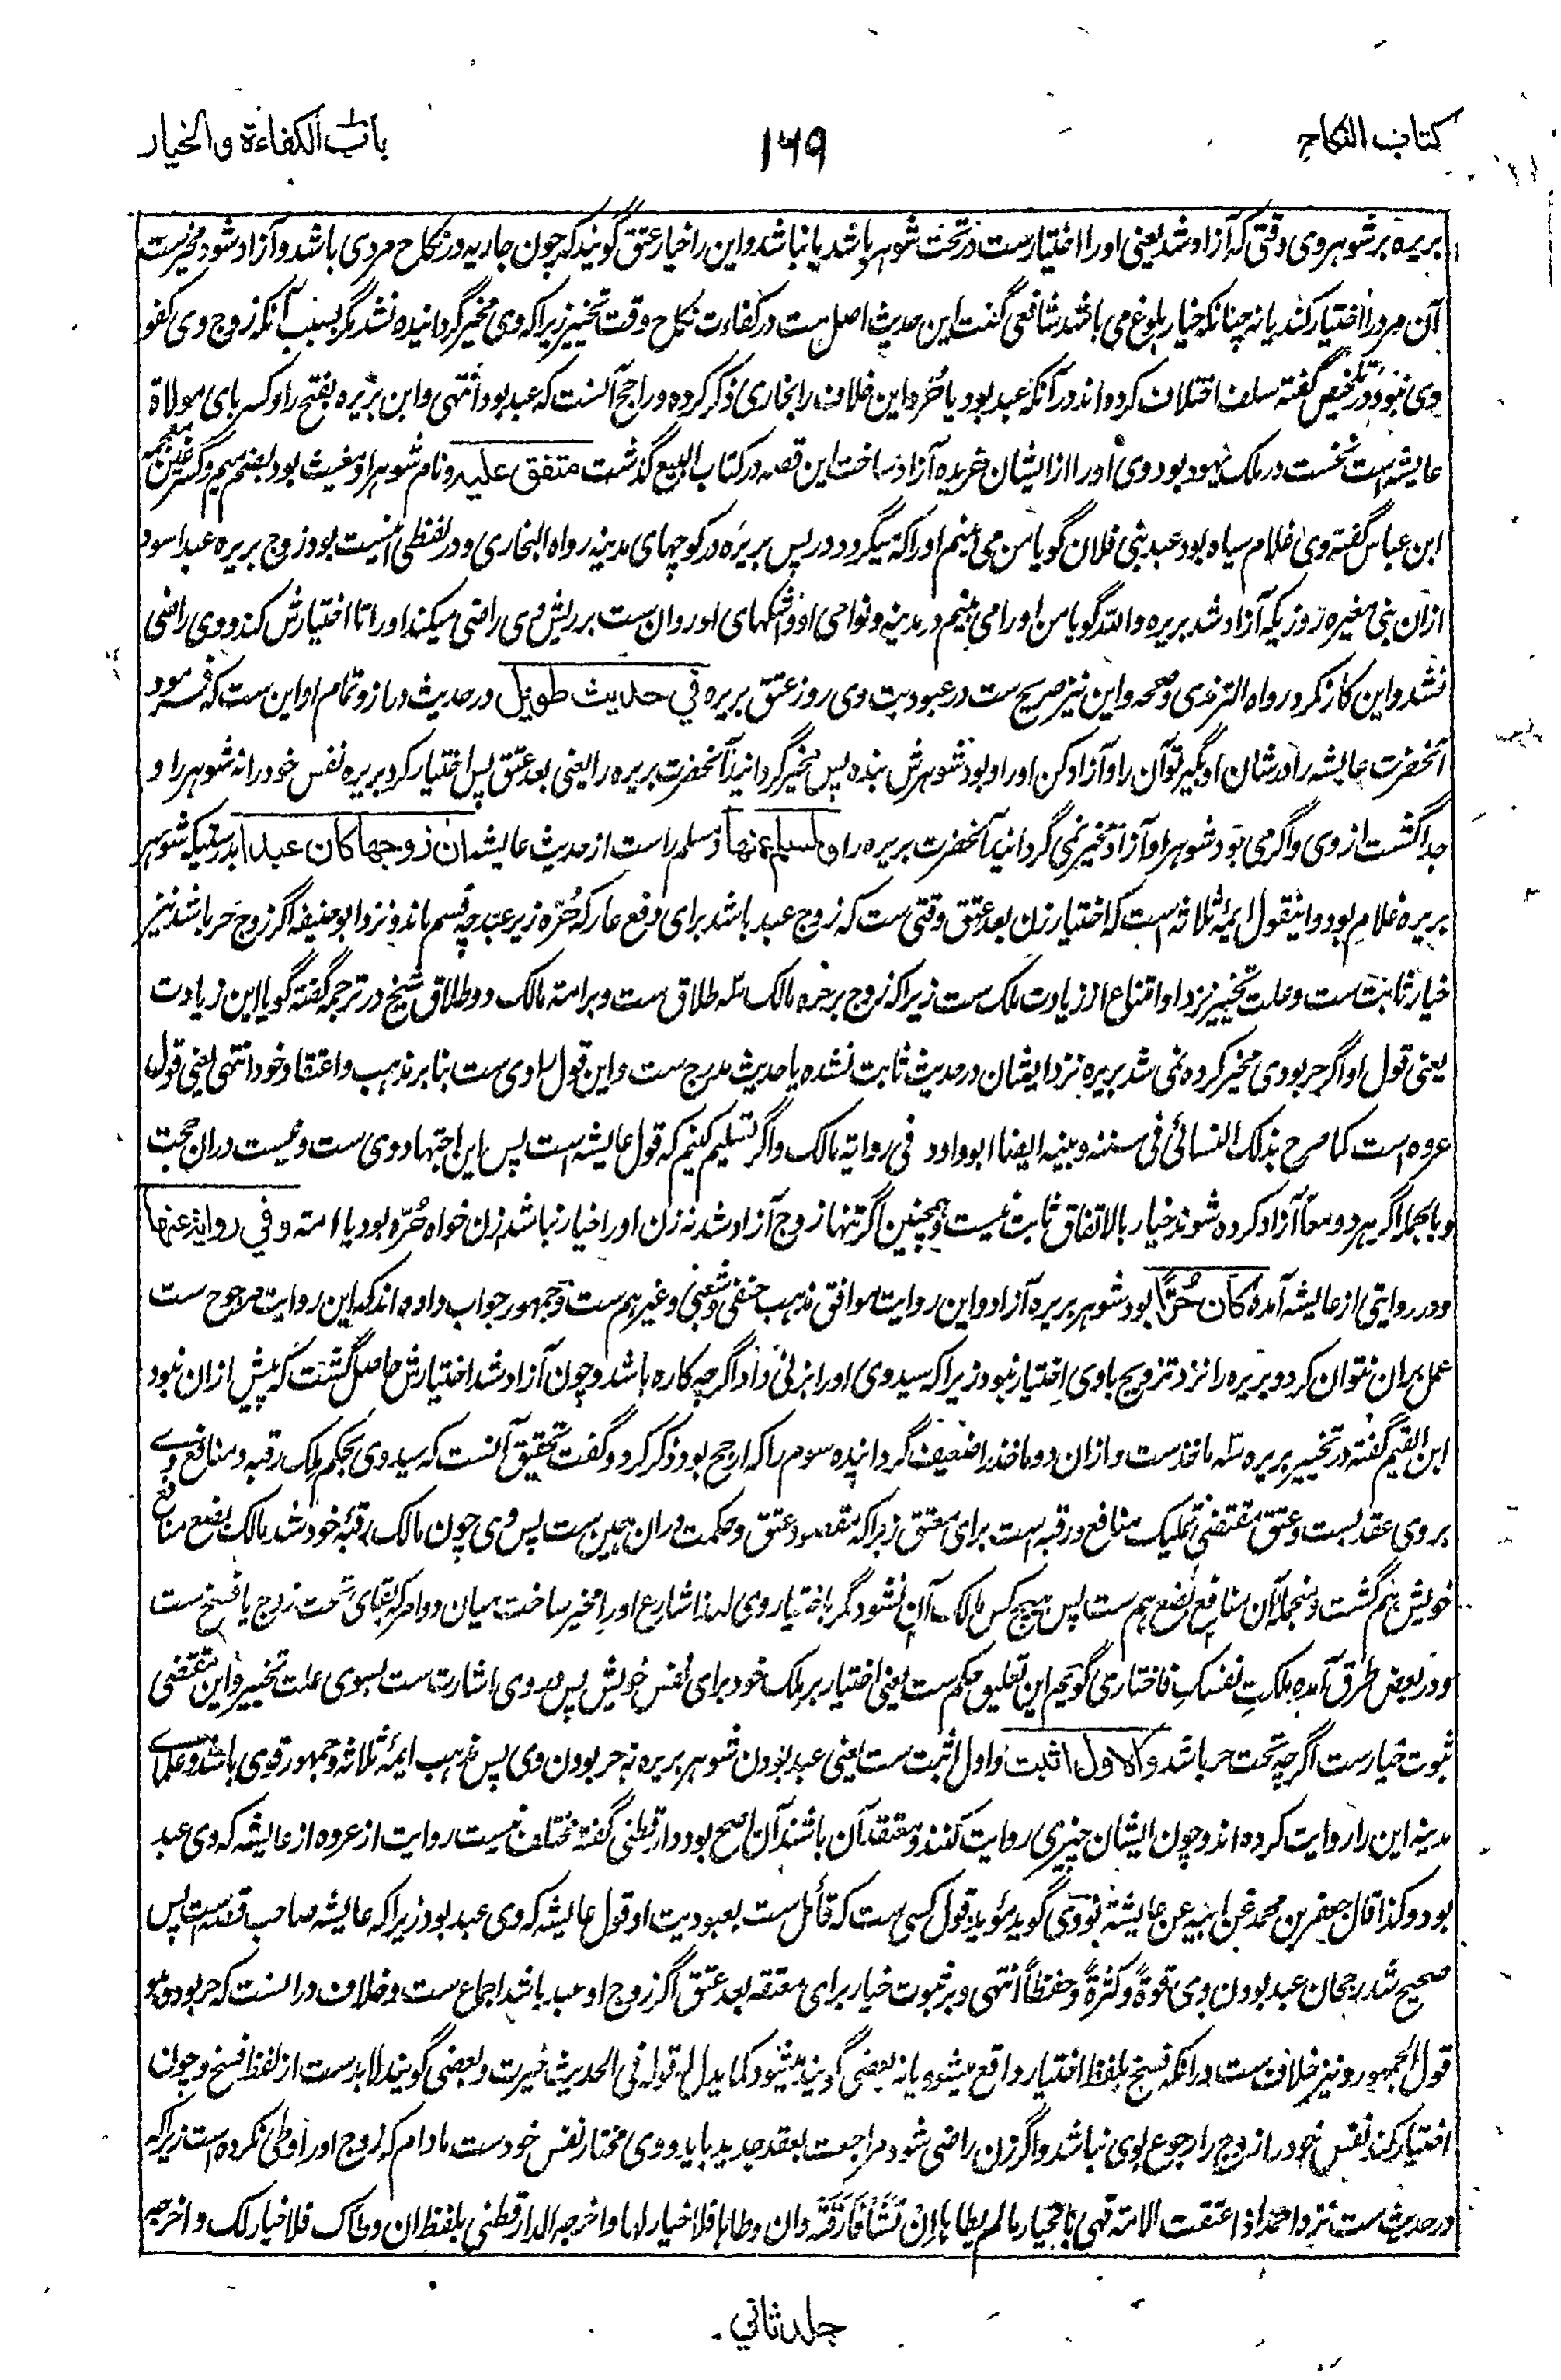 كتاب النكاح
١٦٩
باب الكفاءة والخيار
بریره بر شوهر وی وقتی که آزاد شد یعنی او را اختیارست در تحت شوهر باشد یا نباشد و این را خیار عتق گویند که چون جاریه در نکاح مردی باشد و آزاد شود مخیرست
آن مرد را اختیار کند یا نه چنانکه خیار بلوغ می باشد شافعی گفت این حدیث اصل ست در کفاءت نکاح وقت تخییر زیرا که وی مخیر گردانیده نشد مگر بسبب آنکه زوج وی کفو
وی نبود و در تلخیص گفته سلف اختلاف کرده اند در آنکه عبد بود یا حُر و این خلاف را بخاری ذکر کرده و راجح آنست که عبد بود انتهی و این بریره بفتح را و کسر بای مولاة
عایشه ست نخست در ملک یهود بود وی او را از ایشان خریده آزاد ساخت این قصه در کتاب البیع گذشت متفق عليه و نام شوهر او مغیث بود بضم میم و کسر غین معجمه
ابن عباس گفته وی غلام سیاه بود عبد بنی فلان گویا من می بینم او را که میگردد در پس بریره در کوچهای مدینه رواه البخاری و در لفظی اینست بود زوج بریره عبد اسود
از ان بنی مغیره روزیکه آزاد شد بریره والله گویا من او را می بینم در مدینه و نواحی او و اشکهای او روان ست بر ریش وی راضی میکند او را تا اختیارش کند و وی راضی
نشد و این کار نکرد رواه الترمذی و صححه و این نیز صریح ست در عبودیت وی روز عتق بریره في حديث طويل در حدیث دراز و تمام او این ست که فرمود
آنحضرت عایشه را در شان او بگیر تو آن را و آزاد کن او را و بود شوهرش بنده پس مخیر گردانید آنحضرت بریره را یعنی بعد عتق پس اختیار کرد بریره نفس خود را نه شوهر را و
جدا گشت از وی و اگر می بود شوهر او آزاد مخیر نمی گردانید آنحضرت بریره را ولمسلم عنها و مسلم راست از حدیث عایشه ان زوجها كان عبدا بدرستیکه شوهر
بریره غلام بود و اینقول ایمه ثلاثه است که اختیار زن بعد عتق وقتی ست که زوج عبد باشد برای دفع عار که حُرّه زیر عبد چه قسم ماند و نزد ابو حنیفه اگر زوج حر باشد نیز
خیار ثابت ست و علت تخییر نزد او امتناع از زیادت ملک ست زیرا که زوج بر حره مالک سه طلاق ست و بر امته مالک دو طلاق شیخ در ترجمه گفته گویا این زیادت
یعنی قول او اگر حر بودی مخیر کرده نمی شد بریره نزد ایشان در حدیث ثابت نشده یا حدیث مدرج ست و این قول راوی ست بنا بر مذهب و اعتقاد خود انتهی یعنی قول
عروه است کما صرح بذلک النسائی فی سننه و بینه ایضا ابو داود فی روایة مالک و اگر تسلیم کنیم که قول عایشه است پس این اجتهاد وی ست و نیست دران حجت
و بالجمله اگر هر دو معاً آزاد کرده شوند خیار بالاتفاق ثابت نیست و همچنین اگر تنها زوج آزاد شد نه زن او را خیار نباشد زن خواه حُرّه بود یا امته وفي رواية عنها
و در روایتی از عایشه آمده كان حُرًّا بود شوهر بریره آزاد و این روایت موافق مذهب حنفی و شعبی و غیرهم ست و جمهور جواب داده اند که این روایت مرجوح ست
عمل بران نتوان کرد و بریره را نزد تزویج باوی اختیار نبود زیرا که سید وی او را بزنی داد اگرچه کاره باشد و چون آزاد شد اختیارش حاصل گشت که پیش ازان نبود
ابن القیم گفته در تخییر بریره سه ماخذ ست و ازان دو ماخذ را ضعیف گردانیده سوم را که ارجح بود ذکر کرد و گفت تحقیق آنست که سید وی بحکم ملک رقبه و منافع وے
بروی عقد بست و عتق مقتضی تملیک منافع و رقبه است برای معتق زیرا که مقصود عتق و حکمت دران همین ست پس وی چون مالک رقبه خود شد مالک بضع منافع
خویش هم گشت و منجمله آن منافع بضع هم ست پس هیچ کس مالک آن نشود مگر باختیار وی لهذا شارع او را مخیر ساخت میان دو امر که بقای تحت زوج یا فسخ ست
و در بعض طرق آمده ملکتِ نفسکِ فاختاری گویم این تعلیق حکم ست یعنی اختیار بر ملک خود برای نفس خویش پس در وی اشارت ست بسوی علت تخییر و این مقتضی
ثبوت خیارست اگرچه تحت حر باشد والاول اثبت و اول اثبت ست یعنی عبد بودن شوهر بریره نه حر بودن وی پس مذهب ایمه ثلاثه و جمهور قوی باشد و علمای
مدینه این را روایت کرده اند و چون ایشان چیزی روایت کنند و معتقد آن باشند آن اصح بود دارقطنی گفته مختلف نیست روایت از عروه از عایشه که وی عبد
بود و کذا قال جعفر بن محمد عن ابیه عن عایشة نووی گوید مؤید قول کسی ست که قائل ست بعبودیت او قول عایشه که وی عبد بود زیرا که عایشه صاحب قصه ست پس
صحیح شد رجحان عبد بودن وی قوةً و کثرةً و حفظاً انتهی و بر ثبوت خیار برای معتقه بعد عتق اگر زوج او عبد باشد اجماع ست و خلاف در آنست که حر بود و هو
قول الجمهور و نیز خلاف ست در آنکه فسخ بلفظ اختیار واقع میشود یا نه بعضی گویند میشود کما یدل له قوله فی الحدیث خیرت و بعضی گویند لابدست از لفظ فسخ و چون
اختیار کند نفس خود را زوج را رجوع بوی نباشد و اگر زن راضی شود مراجعت بعقد جدید باید و وی مختار نفس خودست مادام که زوج او را وطی نکرده است زیرا که
در حدیث ست نزد احمد اذا اعتقت الامة فهی بالخیار ما لم یطاها اِنْ تَشَأْ فَارَقَتْه وان وطاها فلا خیار لها و اخرجه الدارقطنی بلفظ ان وطاک فلا خیار لک و اخرجه
جلد ثاني